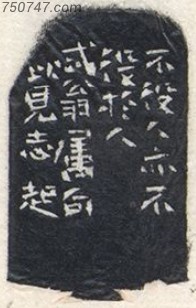 750747.com
不役人亦不
役於人
貳翁属句
此見志起